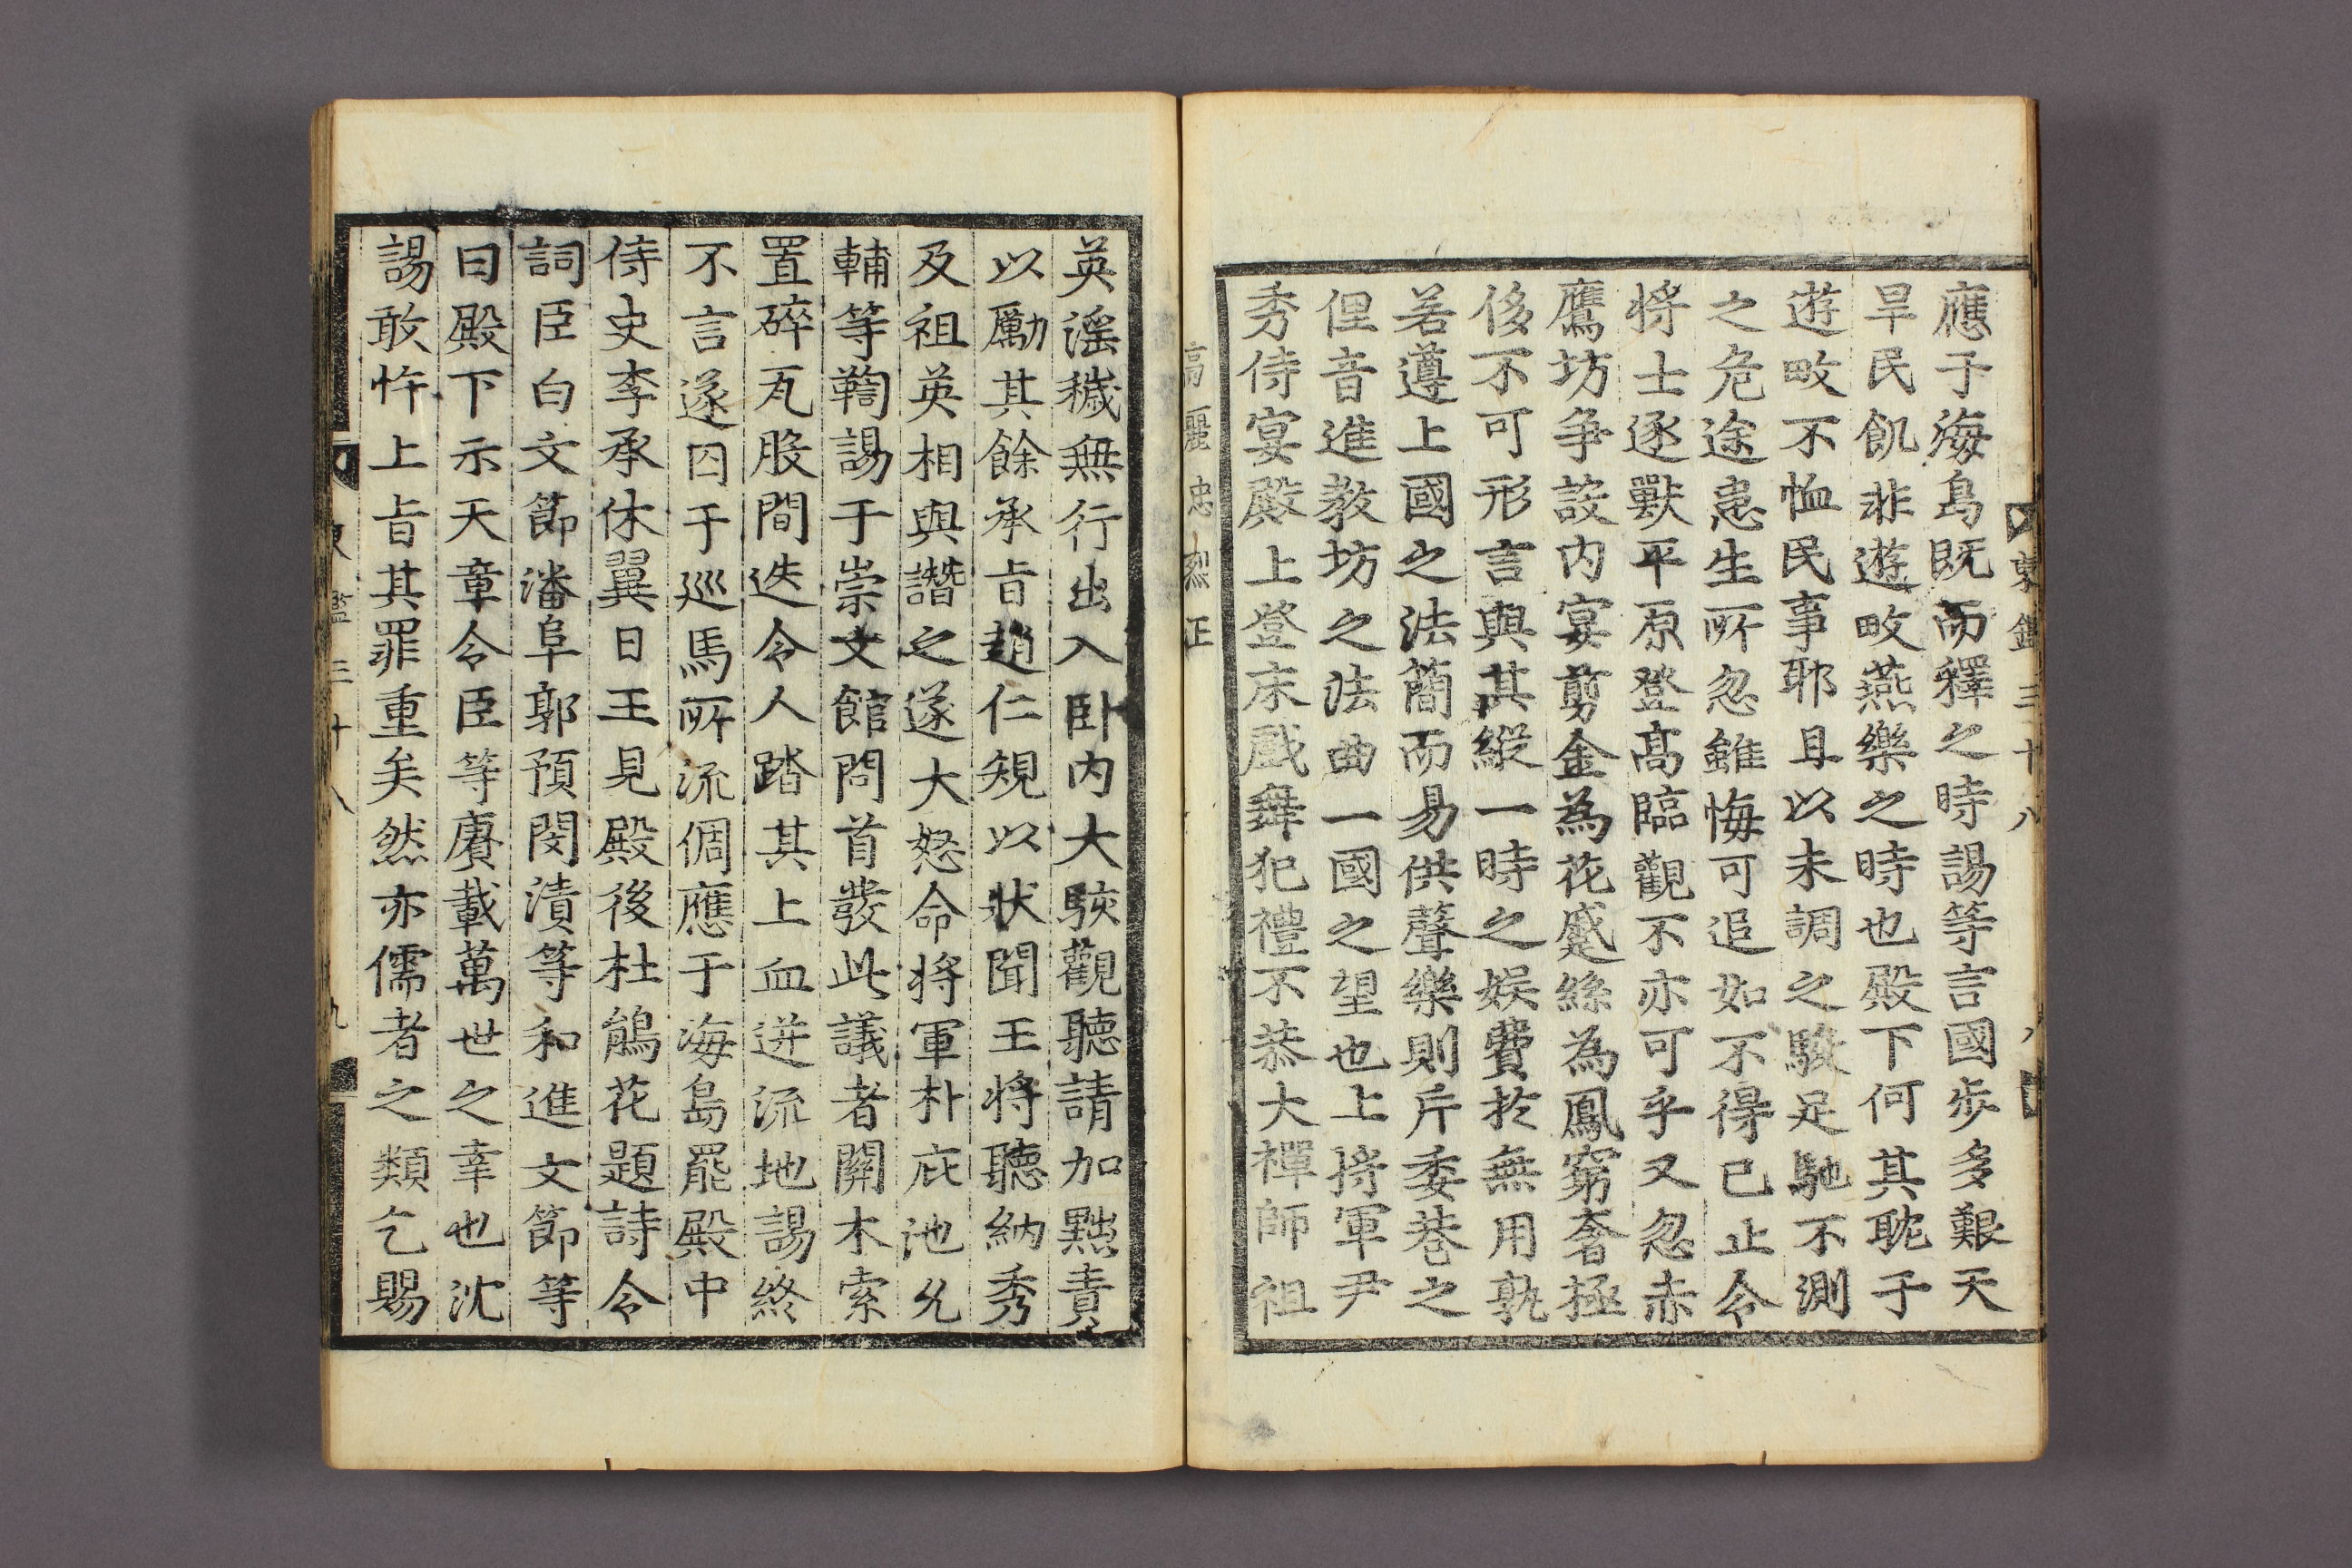 東鑑三十八
八
應于海島既而釋之時諹等言國步多艱天
旱民飢非遊畋燕樂之時也殿下何其耽于
遊畋不恤民事耶且以未調之駿足馳不測
之危途患生所忽雖悔可追如不得已止令
将士逐獸平原登髙臨觀不亦可乎又忽赤
鷹坊争設内宴剪金為花蹙絲為鳳窮奢極
侈不可形言與其縱一時之娱費於無用孰
若遵上國之法簡而易供聲樂則斥委巷之
俚音進教坊之法曲一國之望也上将軍尹
秀侍宴殿上登床戱舞犯禮不恭大禪師祖
高麗忠烈王
英滛穢無行出入卧内大駭觀聽請加黜責
以勵其餘承旨趙仁規以狀聞王将聽納秀
及祖英相與譖之遂大怒命将軍朴庇池允
輔等鞫諹于崇文館問首發此議者關木索
置碎瓦股間迭令人踏其上血迸流地諹終
不言遂囚于巡馬所流倜應于海島罷殿中
侍史李承休翼日王見殿後杜鵑花題詩令
詞臣白文節潘阜郭預閔漬等和進文節等
曰殿下示天章令臣等賡載萬世之幸也沈
諹敢忤上旨其罪重矣然亦儒者之類乞賜
東鑑三十八
九